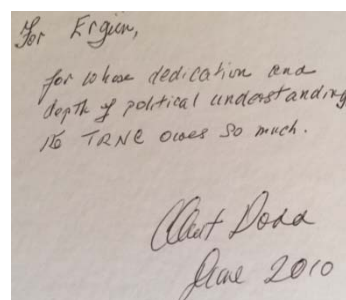 For Ergün,
for whose dedication and
depth of political understanding
the TRNC owes so much.
Dodd
June 2010